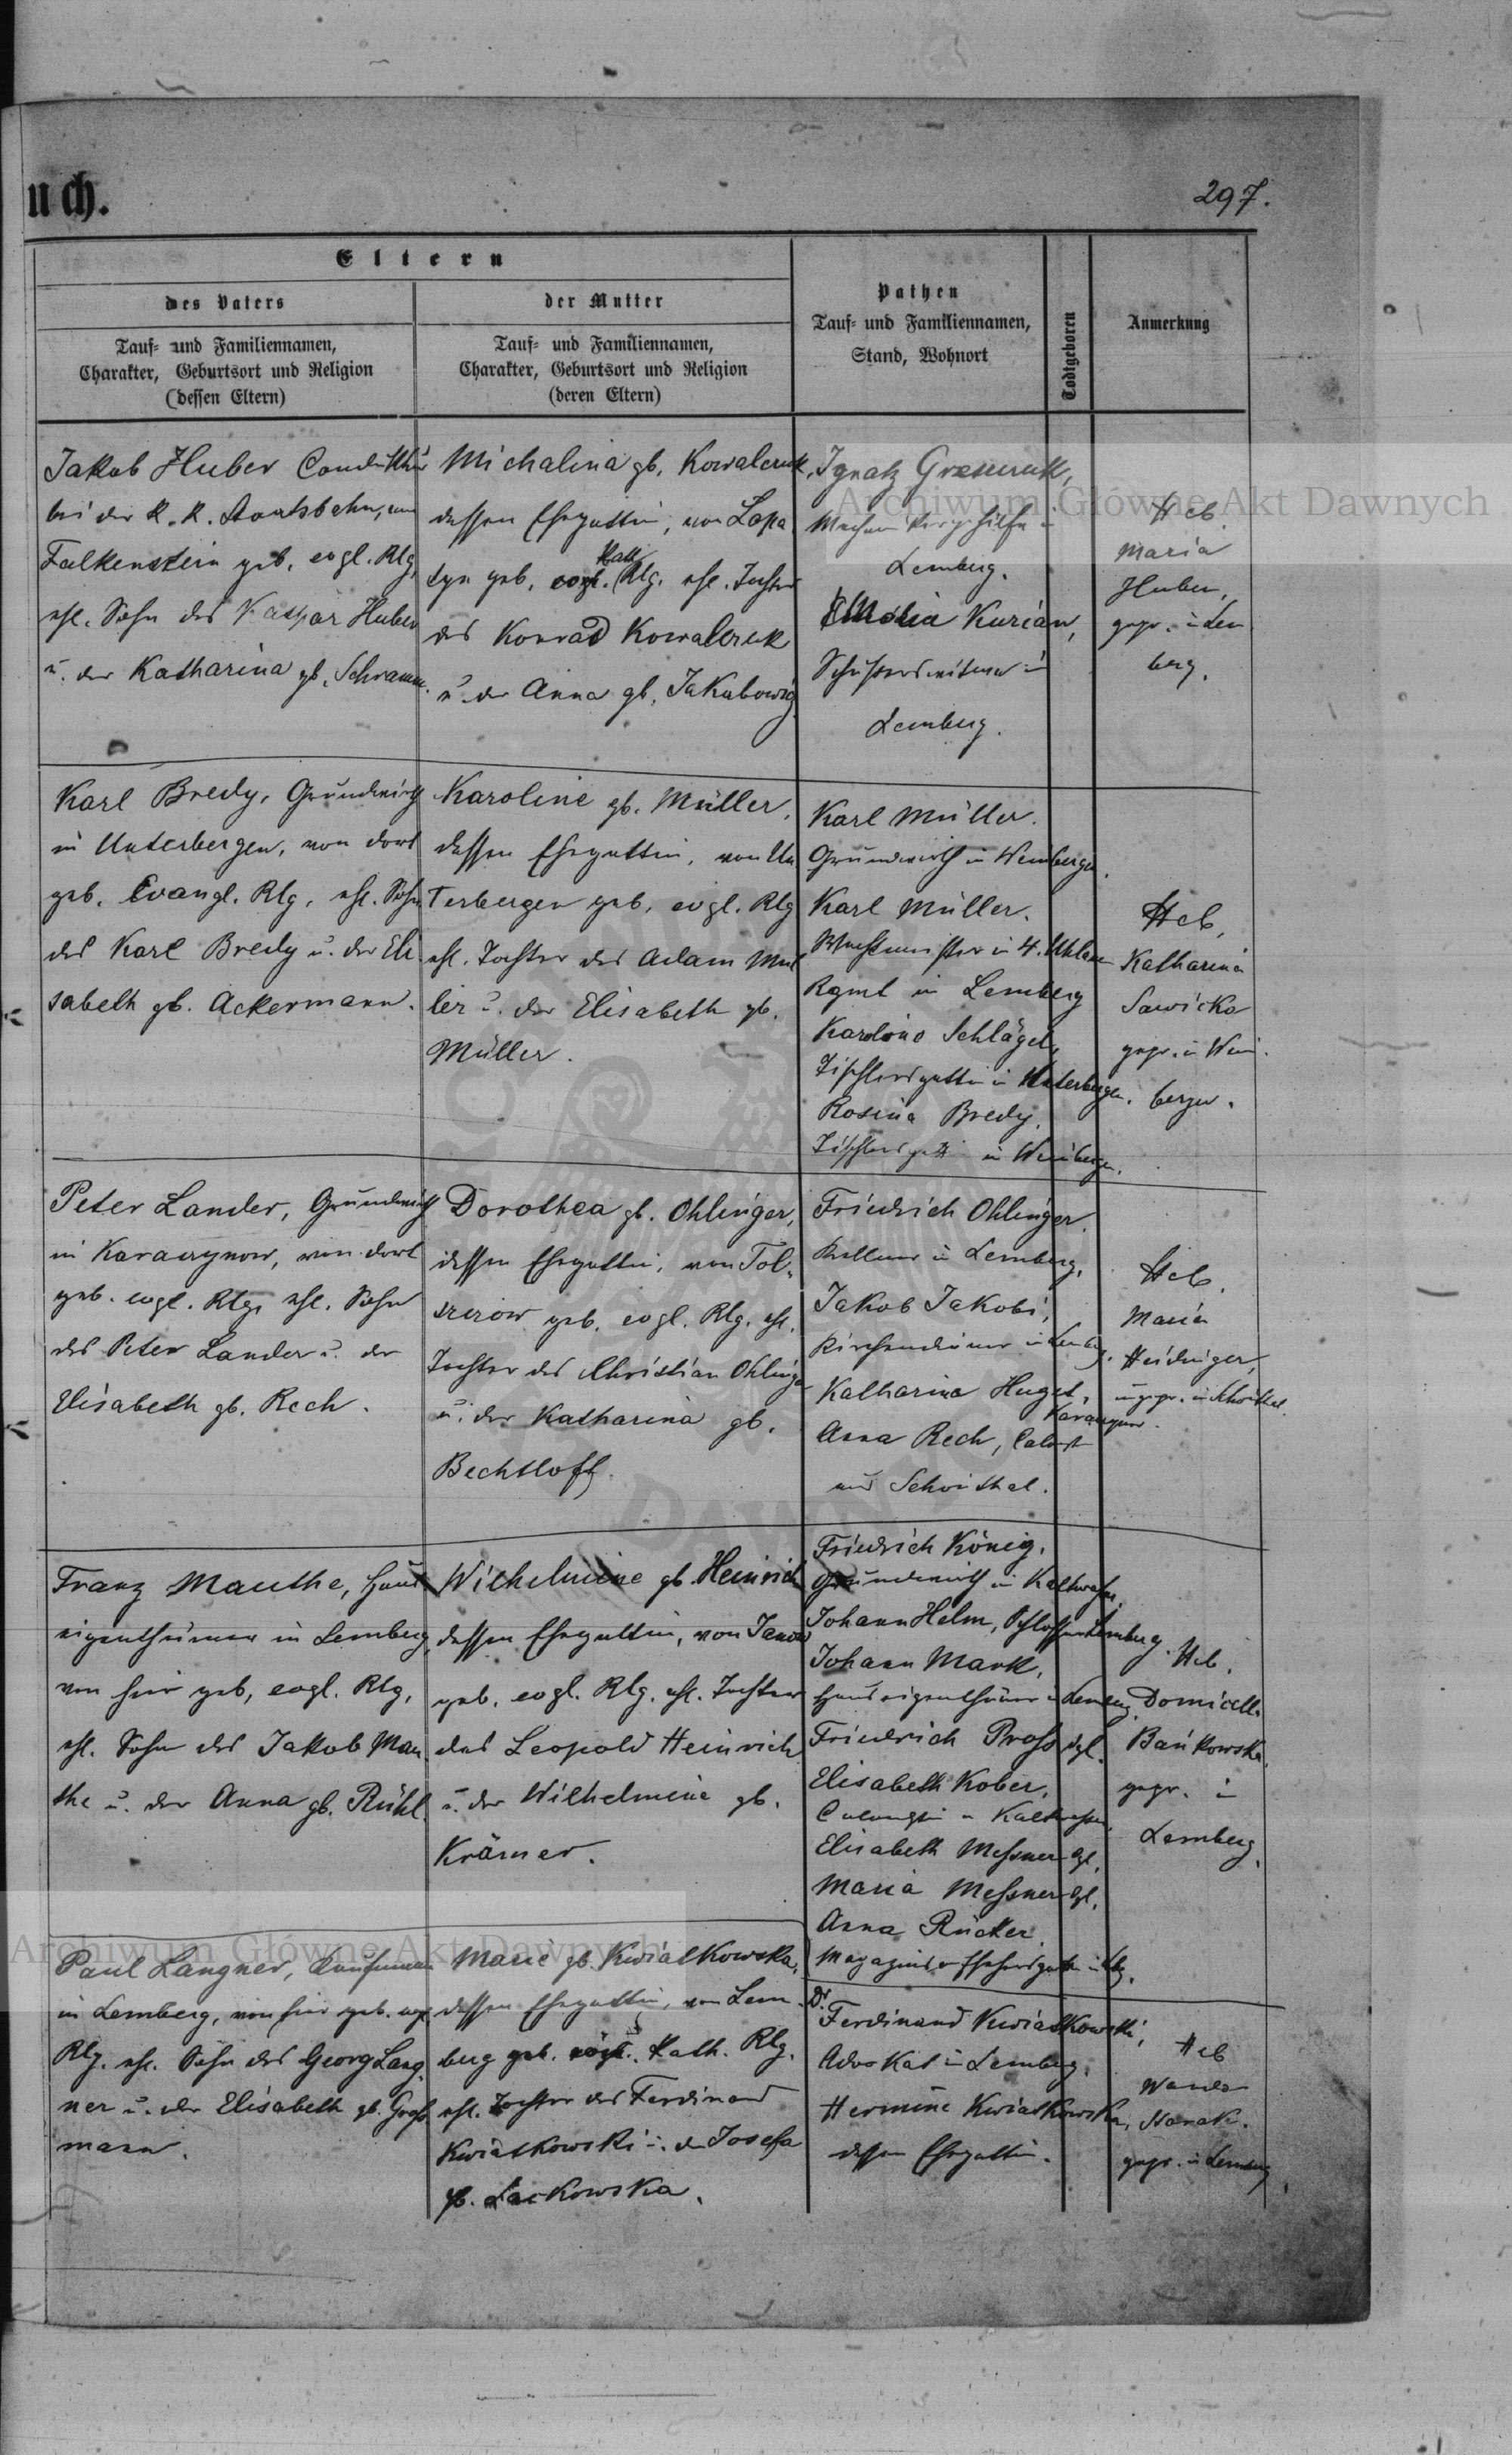 uch.
297.
Eltern
des Vaters
der Mutter
Pathen
Tauf- und Familiennamen,
Stand, Wohnort
Todtgeboren
Anmerkung
Tauf- und Familiennamen,
Charakter, Geburtsort und Religion
(dessen Eltern)
Tauf- und Familiennamen,
Charakter, Geburtsort und Religion
(deren Eltern)
Archiwum Główne Akt Dawnych
Jakob Huber Conduktür
bei der K. K. Staatsbahn, von
Falkenstein geb. evgl. Rlg,
ehl. Sohn des Kaspar Huber
u. der Katharina gb. Schramm.
Michalina gb. Kowalczuk,
dessen Ehegattin, von Lopa
tyn geb. evgl. Kath Rlg. ehl. Tochter
des Konrad Kowalczuk
u. der Anna gb. Jakubowicz
Ignatz
in
Lemberg.
Kurian,
in
Lemberg.
Heb.
Maria
Huber,
gepr. in Lem
berg.
Karl Bredy, Grundwirth
in Unterbergen, von dort
geb. Evangl. Rlg. ehl. Sohn
des Karl Bredy u. der Eli
sabeth gb. Ackermann.
Karoline gb. Müller,
dessen Ehegattin, von Un
terbergen geb. evgl. Rlg
ehl. Tochter des Adam Mül
ler u. der Elisabeth gb.
Müller.
Karl Müller.
Grundwirth in Weinbergen.
Karl Müller.
Wachtmeister in 4. Uhlanen
Rgmt in Lemberg
Karoline Schlägel,
Tischlersgattin in Unterbergen.
Rosina Bredy.
Tischlersgattin in Weinbergen.
Heb.
Katharina
Sawicka
gepr. in Wein
bergen.
Peter Lander, Grundwirth
in Karaczynow, von dort
geb. evgl. Rlg. ehl. Sohn
des Peter Lander u. der
Elisabeth gb. Rech.
Dorothea gb. Ohlinger,
dessen Ehegattin, von Tol-
szczow geb. evgl. Rlg. ehl.
Tochter des Christian Ohlinger
u. der Katharina gb.
Bechtloff.
Friedrich Ohlinger.
in Lemberg.
Jakob Jakobi,
Kirchendiener in Lemberg.
Katharina Huget,
Karaczynow.
Anna Rech,
aus Schönthal.
Heb.
Maria
Heidinger,
ungepr. in Schönthal.
Franz Mauthe, Haus
eigenthümer in Lemberg,
von hier geb, evgl. Rlg,
ehl. Sohn des Jakob Mau
the u. der Anna gb. Rühl.
Wilhelmine gb. Heinrich
dessen Ehegattin, von Janow
geb. evgl. Rlg. ehl. Tochter
des Leopold Heinrich
u. der Wilhelmine gb.
Krämer.
Friedrich König.
Grundwirth in Kaltwasser.
Johann Helm, Schlosser Lemberg.
Johann Mark,
Hauseigenthümer in Lemberg.
Friedrich Pross dgl.
Elisabeth Kober,
in Kaltwasser.
Elisabeth Messner dgl.
Maria Messner dgl.
Anna Rücker
Heb.
Domicella
Bańkowska,
gepr. in
Lemberg.
Archiwum Główne Akt Dawnych
Paul Langner, Kaufmann
in Lemberg, von hier geb. evgl
Rlg. ehl. Sohn des Georg Lang
ner u. der Elisabeth gb. Gross
mann.
Marie gb. Kwiatkowska,
dessen Ehegattin, von Lem
berg geb. evgl. Kath. Rlg.
ehl. Tochter des Ferdinand
Kwiatkowski u. der Josefa
gb. Lackowska.
Dr Ferdinand Kwiatkowski,
Advokat in Lemberg.
Hermine Kwiatkowska,
dessen Ehegattin.
Heb
Wanda
gepr. in Lemberg